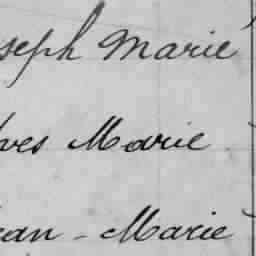 seph Marie
ves Marie
ean - Marie